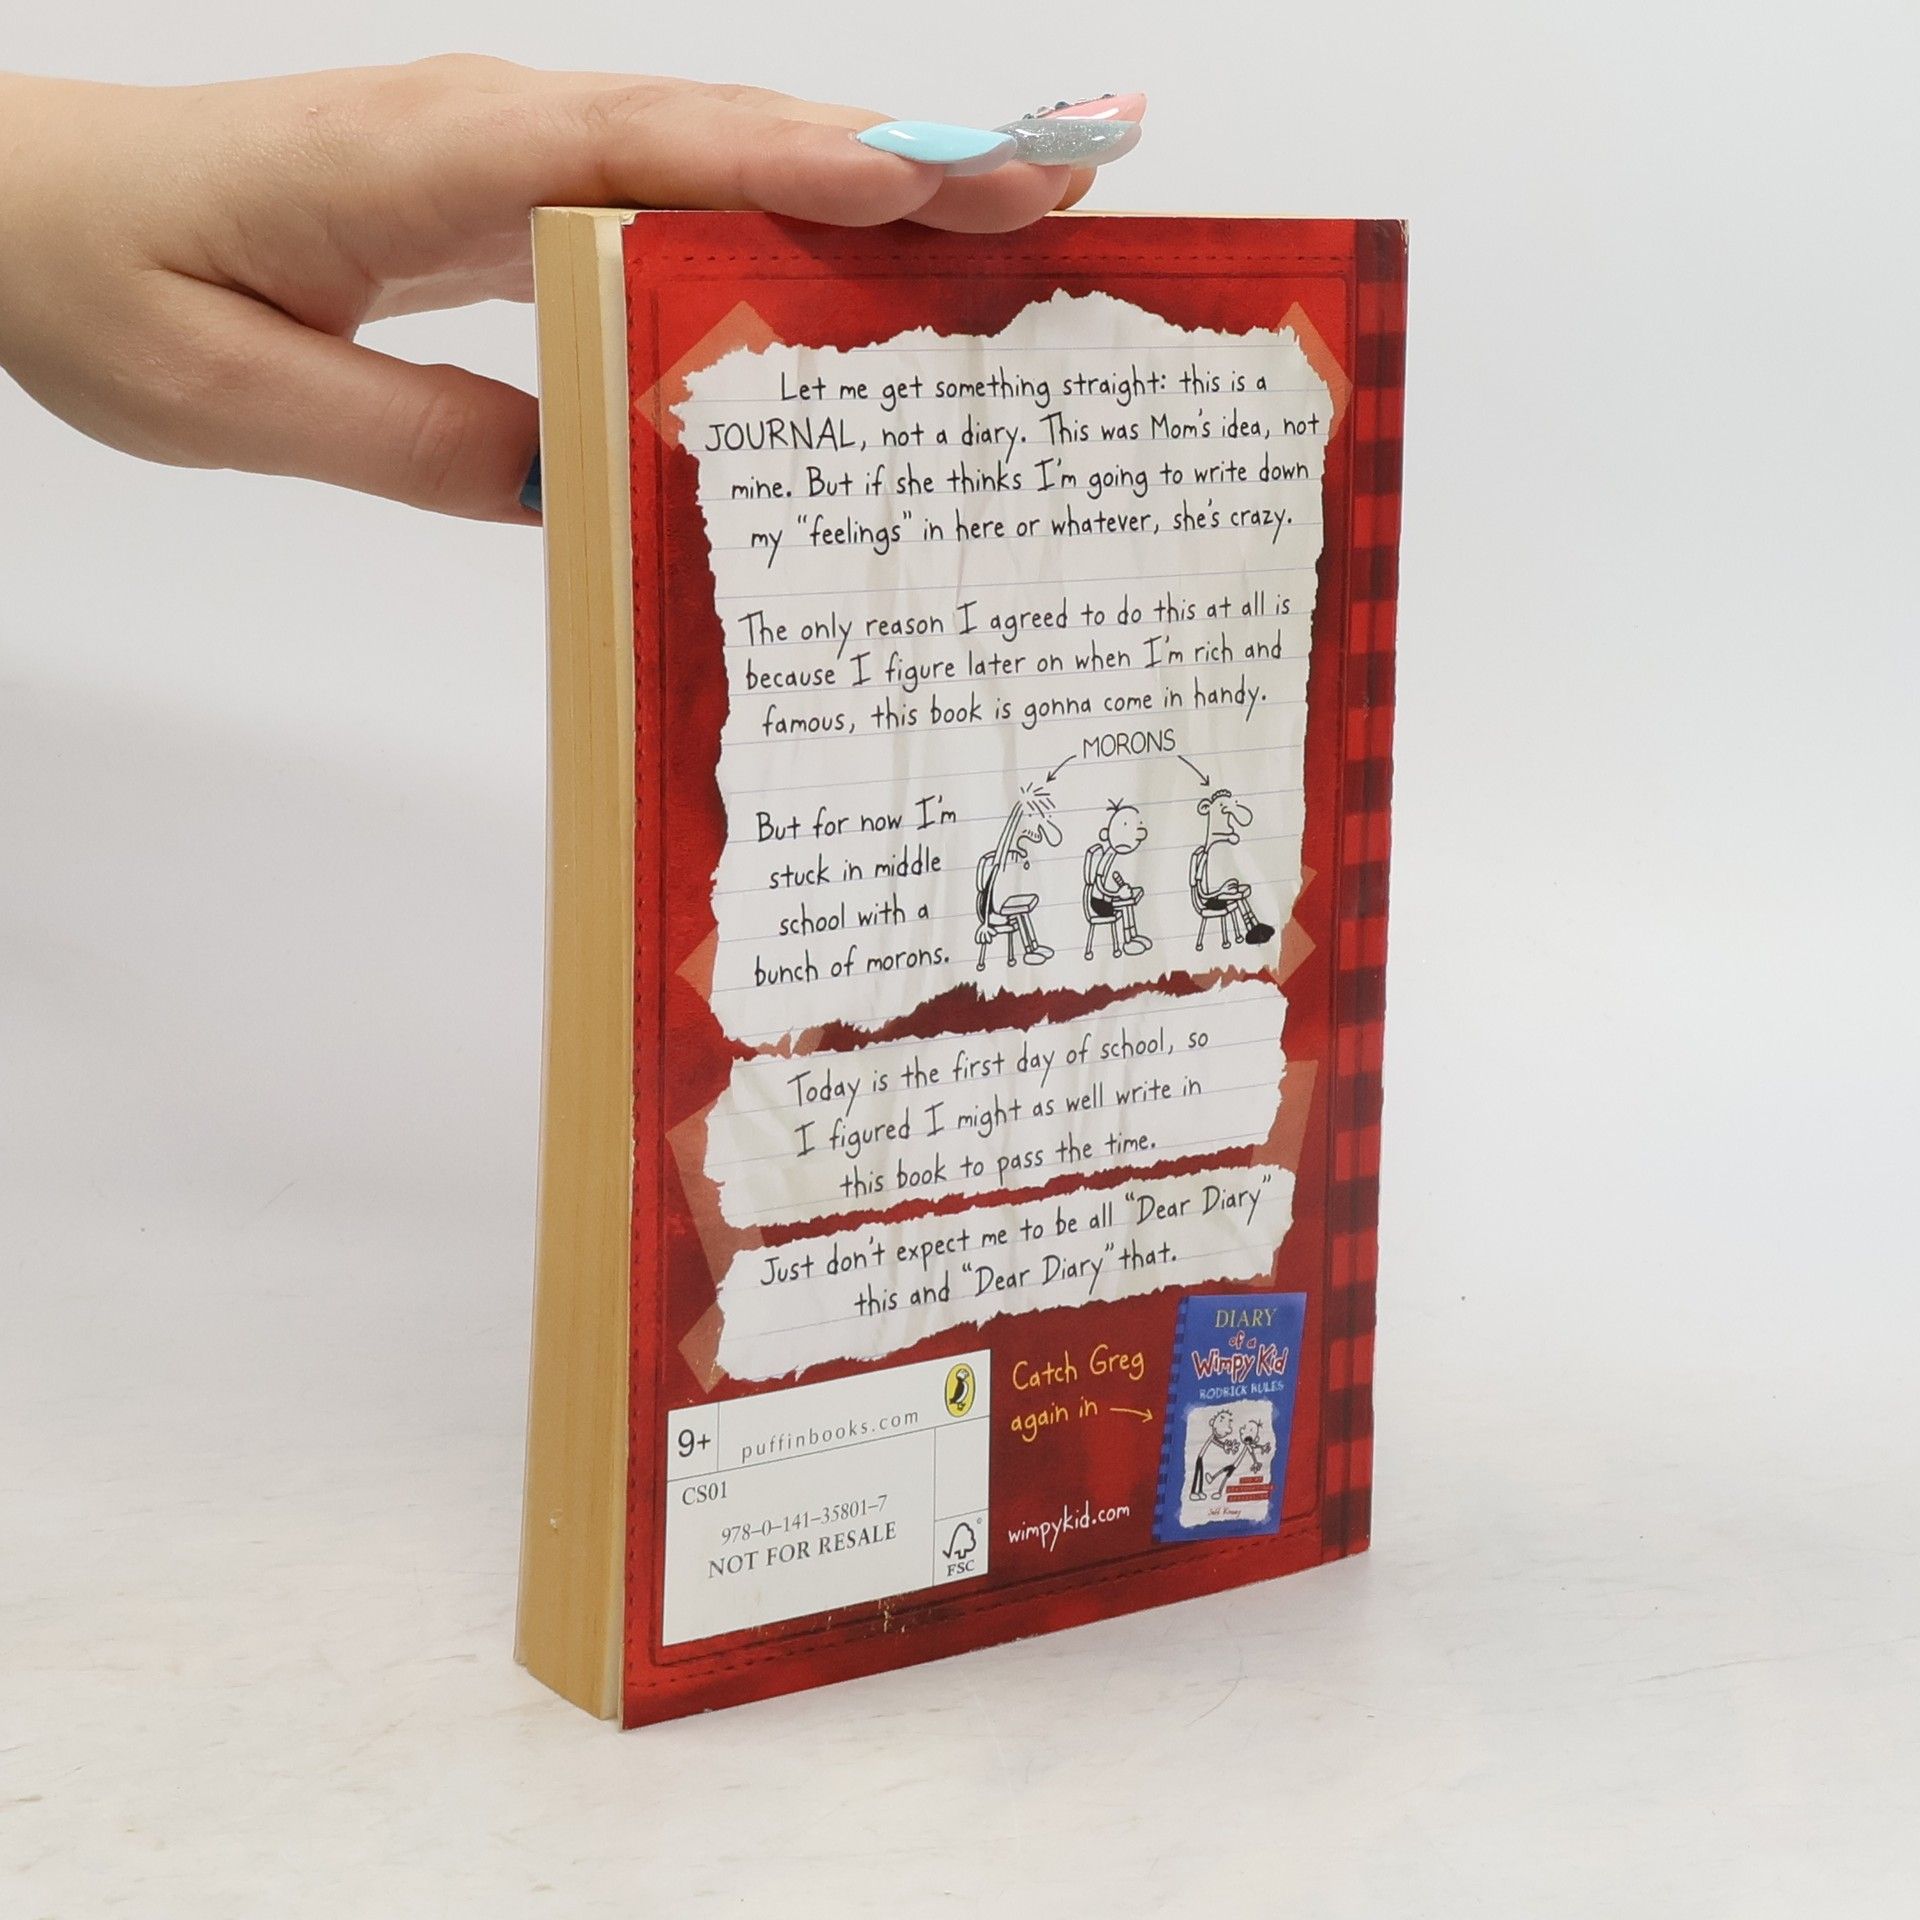 Let me get something straight: this is a
JOURNAL, not a diary. This was Mom's idea, not
mine. But if she thinks I'm going to write down
my "feelings" in here or whatever, she's crazy.
The only reason I agreed to do this at all is
because I figure later on when I'm rich and
famous, this book is gonna come in handy.
MORONS
But for now I'm
stuck in middle
school with a
bunch of morons.
Today is the first day of school, so
I figured I might as well write in
this book to pass the time.
Just don't expect me to be all "Dear Diary"
this and "Dear Diary" that.
9+
puffinbooks.com
CS01
978-0-141-35801-7
NOT FOR RESALE
FSC
Catch Greg
again in
wimpykid.com
DIARY
of a
Wimpy Kid
RODRICK RULES
Jeff Kinney